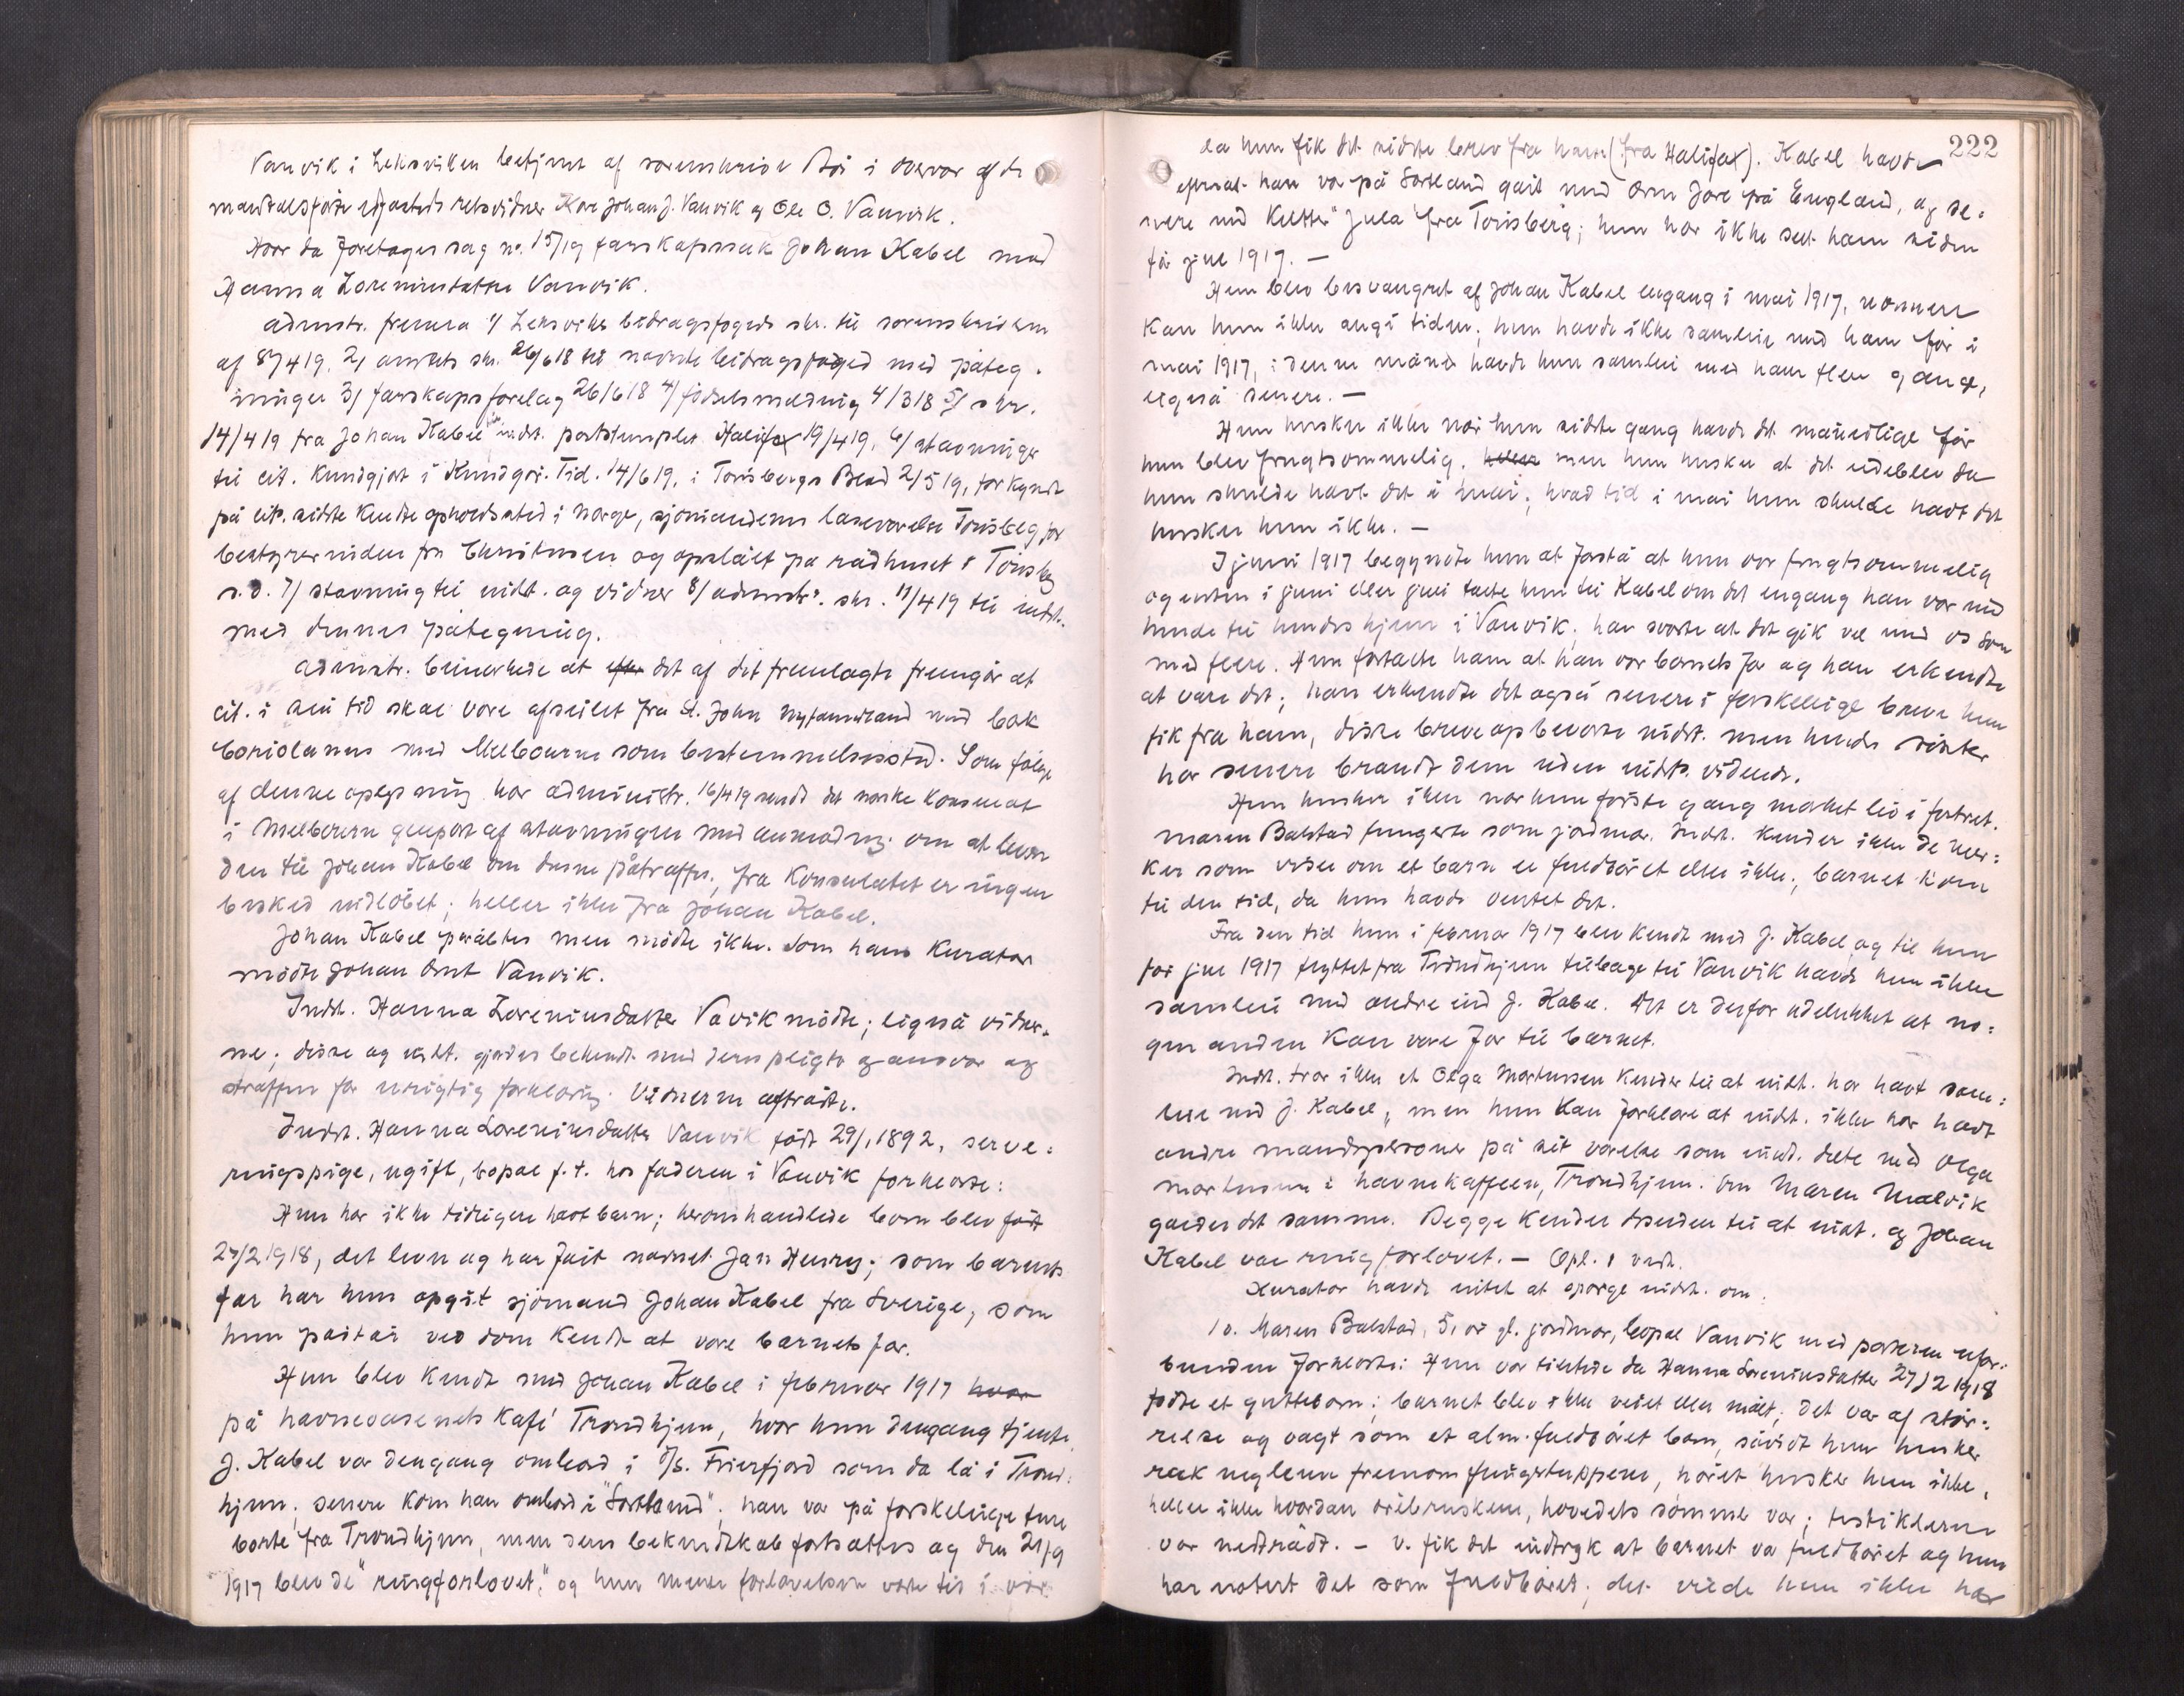 Vanvik i Leksviken betjent af sorenskriver Boi i overvær af de
mandtalsførte edfæstede retsvidner Kare Johan J. Vanvik og Ole O. Vanvik.
Hvor da foretages sag no. 15/19 farskapssak Johan Kabel mod
Hanna Loreninsdatter Vanvik.
Admstr. fremla 1/ Leksvikens bidragsfogeds skr. til sorenskriveren
af 8/4 19. 2/ amtets skr. 26/6 18 til nævnte bidragsfoged med påteg-
ninger 3/ farskapsforelæg 26/6 18 4/ fødselsmelding 4/3 18 5/ skr.
14/4 19 fra Johan Kabel til indst. poststemplet Halifax 19/4 19. 6/ stævninger
til cit. kundgjort i Kundgør. Tid. 14/6 19, i Tønsbergs Blad 2/5 19, forkyndt
på cit. sidste kendte opholdssted i Norge, sjømandens læseværelse Tønsberg for
bestyrerinden fru Christensen og opslått på rådhuset i Tønsbg
s.d. 7/ stævning til indst. og vidner 8/ admstr. skr. 11/4 19 til indst.
med dennes påtegning.
Admstr. bemerkede at efter det af det fremlagte fremgår at
cit. i sin tid skal være afseilet fra St. John Nyfundland med bark
Coriolanus med Melbourne som bestemmelsessted. Som følge
af denne oplysning har administr. 16/4 19 sendt det norske konsulat
i Melbourne genpart af stævningen med anmodning om at levere
den til Johan Kabel om denne påtræffes, fra konsulatet er ingen
besked indløbet; heller ikke fra Johan Kabel.
Johan Kabel påråbtes men mødte ikke. Som hans kurator
mødte Johan Arnt Vanvik.
Indst. Hanna Loreninsdatter Vavik mødte; ligeså vidner-
ne; disse og indst. gjordes bekendt med deres pligt og ansvar og
straffen for urigtig forklaring. Vidnerne aftrådte.
Indst. Hanna Loreninsdatter Vanvik født 29/1 1892, serve-
ringspige, ugift, bopæl f.t. hos faderen i Vanvik forklarte:
Hun har ikke tidligere havt barn; heromhandlede barn blev født
27/2 1918, det lever og har fåit navnet Jan Henry; som barnets
far har hun opgit sjømand Johan Kabel fra Sverige, som
hun påstår ved dom kendt at være barnets far.
Hun blev kendt med Johan Kabel i februar 1917 hvor
på havnevæsenets kafé Trondhjem, hvor hun dengang tjente.
J. Kabel var dengang ombord i D/S. Frierfjord som da lå i Trond-
hjem; senere kom han ombord i "Sortland". han var på forskellige ture
borte fra Trondhjem, men deres bekendtskab fortsattes og den 21/9
1917 blev de "ringforlovet", og hun mener forlovelsen varte til i vår
222
da hun fik det sidste brev fra ham (fra Halifax). Kabel havde
efterat han var på Sortland gåit med Orm Jarl på England, og se-
nere med kutter "Jula" fra Tønsberg; hun har ikke set ham siden
før jul 1917. —
Hun blev besvangret af Johan Kabel engang i mai 1917, nærmere
kan hun ikke angi tiden; hun havde ikke samleie med ham før i
mai 1917, i denne måned havde hun samleie med ham flere gange,
ligeså senere. —
Hun husker ikke når hun sidste gang havde det månedlige før
hun blev frugtsommelig. men hun husker at det udeblev da
hun skulde havt det i mai; hvad tid i mai hun skulde havt det
husker hun ikke. —
I juni 1917 begynte hun at forstå at hun var frugtsommelig
og enten i juni eller juli talte hun til Kabel om det engang han var med
hende til hendes hjem i Vanvik; han svarte at det gik vel med os som
med flere. Hun fortalte ham at han var barnets far og han erkendte
at være det; han erkendte det også senere i forskellige breve hun
fik fra ham, disse breve opbevarte indst. men hendes søster
har senere brændt dem uden indst. vidende.
Hun husker ikke når hun første gang mærket liv i fostret.
Maren Bakstad fungerte som jordmor. Indst. kender ikke de mer-
ker som viser om et barn er fuldbåret eller ikke; barnet kom
til den tid, da hun havde ventet det.
Fra den tid hun i februar 1917 blev kendt med J. Kabel og til hun
før jul 1917 flyttet fra Trondhjem tilbage til Vanvik havde hun ikke
samleie med andre end J. Kabel. Det er derfor udelukket at no-
gen anden kan være far til barnet.
Indst. tror ikke at Olga Mortensen kender til at indst. har havt sam-
leie med J. Kabel, men hun kan forklare at indst. ikke har havt
andre mandspersoner på sit værelse som indst. delte med Olga
Mortensen i havnekaffeen, Trondhjem. Om Maren Malvik
gælder det samme. Begge kender desuden til at indst. og Johan
Kabel var ringforlovet. — Opl. & vedt.
Kurator havde intet at spørge indst. om.
1v. Maren Bakstad, 51 år gl. jordmor, bopæl Vanvik med parterne ufor-
bunden forklarte: Hun var tilstede da Hanna Loreninsdatter 27/2 1918
fødte et guttebarn; barnet blev ikke veiet eller målt; det var af stør-
relse og vægt som et alm. fuldbåret barn, såvidt hun husker
rak neglene frem om fingertuppene, håret husker hun ikke,
heller ikke hvordan ørebrusken, hovedets sømme var; testiklerne
var nedtrådt. — V. fik det indtryk at barnet var fuldbåret og hun
har notert det som fuldbåret; det vilde hun ikke har